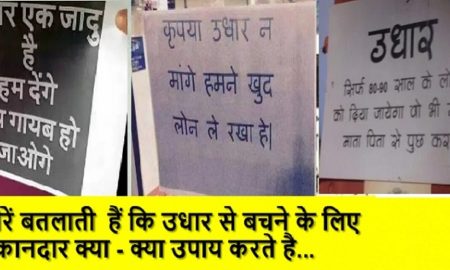 र एक जादु
है
हम देंगे
गायब हो
जाओगे
कृपया उधार न
मांगे हमने खुद
लोन ले रखा है|
उधार
सिर्फ 80-90 साल के लो
को दिया जायेगा जो भी
माता पिता से पुछ कर
रें बतलाती हैं कि उधार से बचने के लिए
कानदार क्या - क्या उपाय करते है...